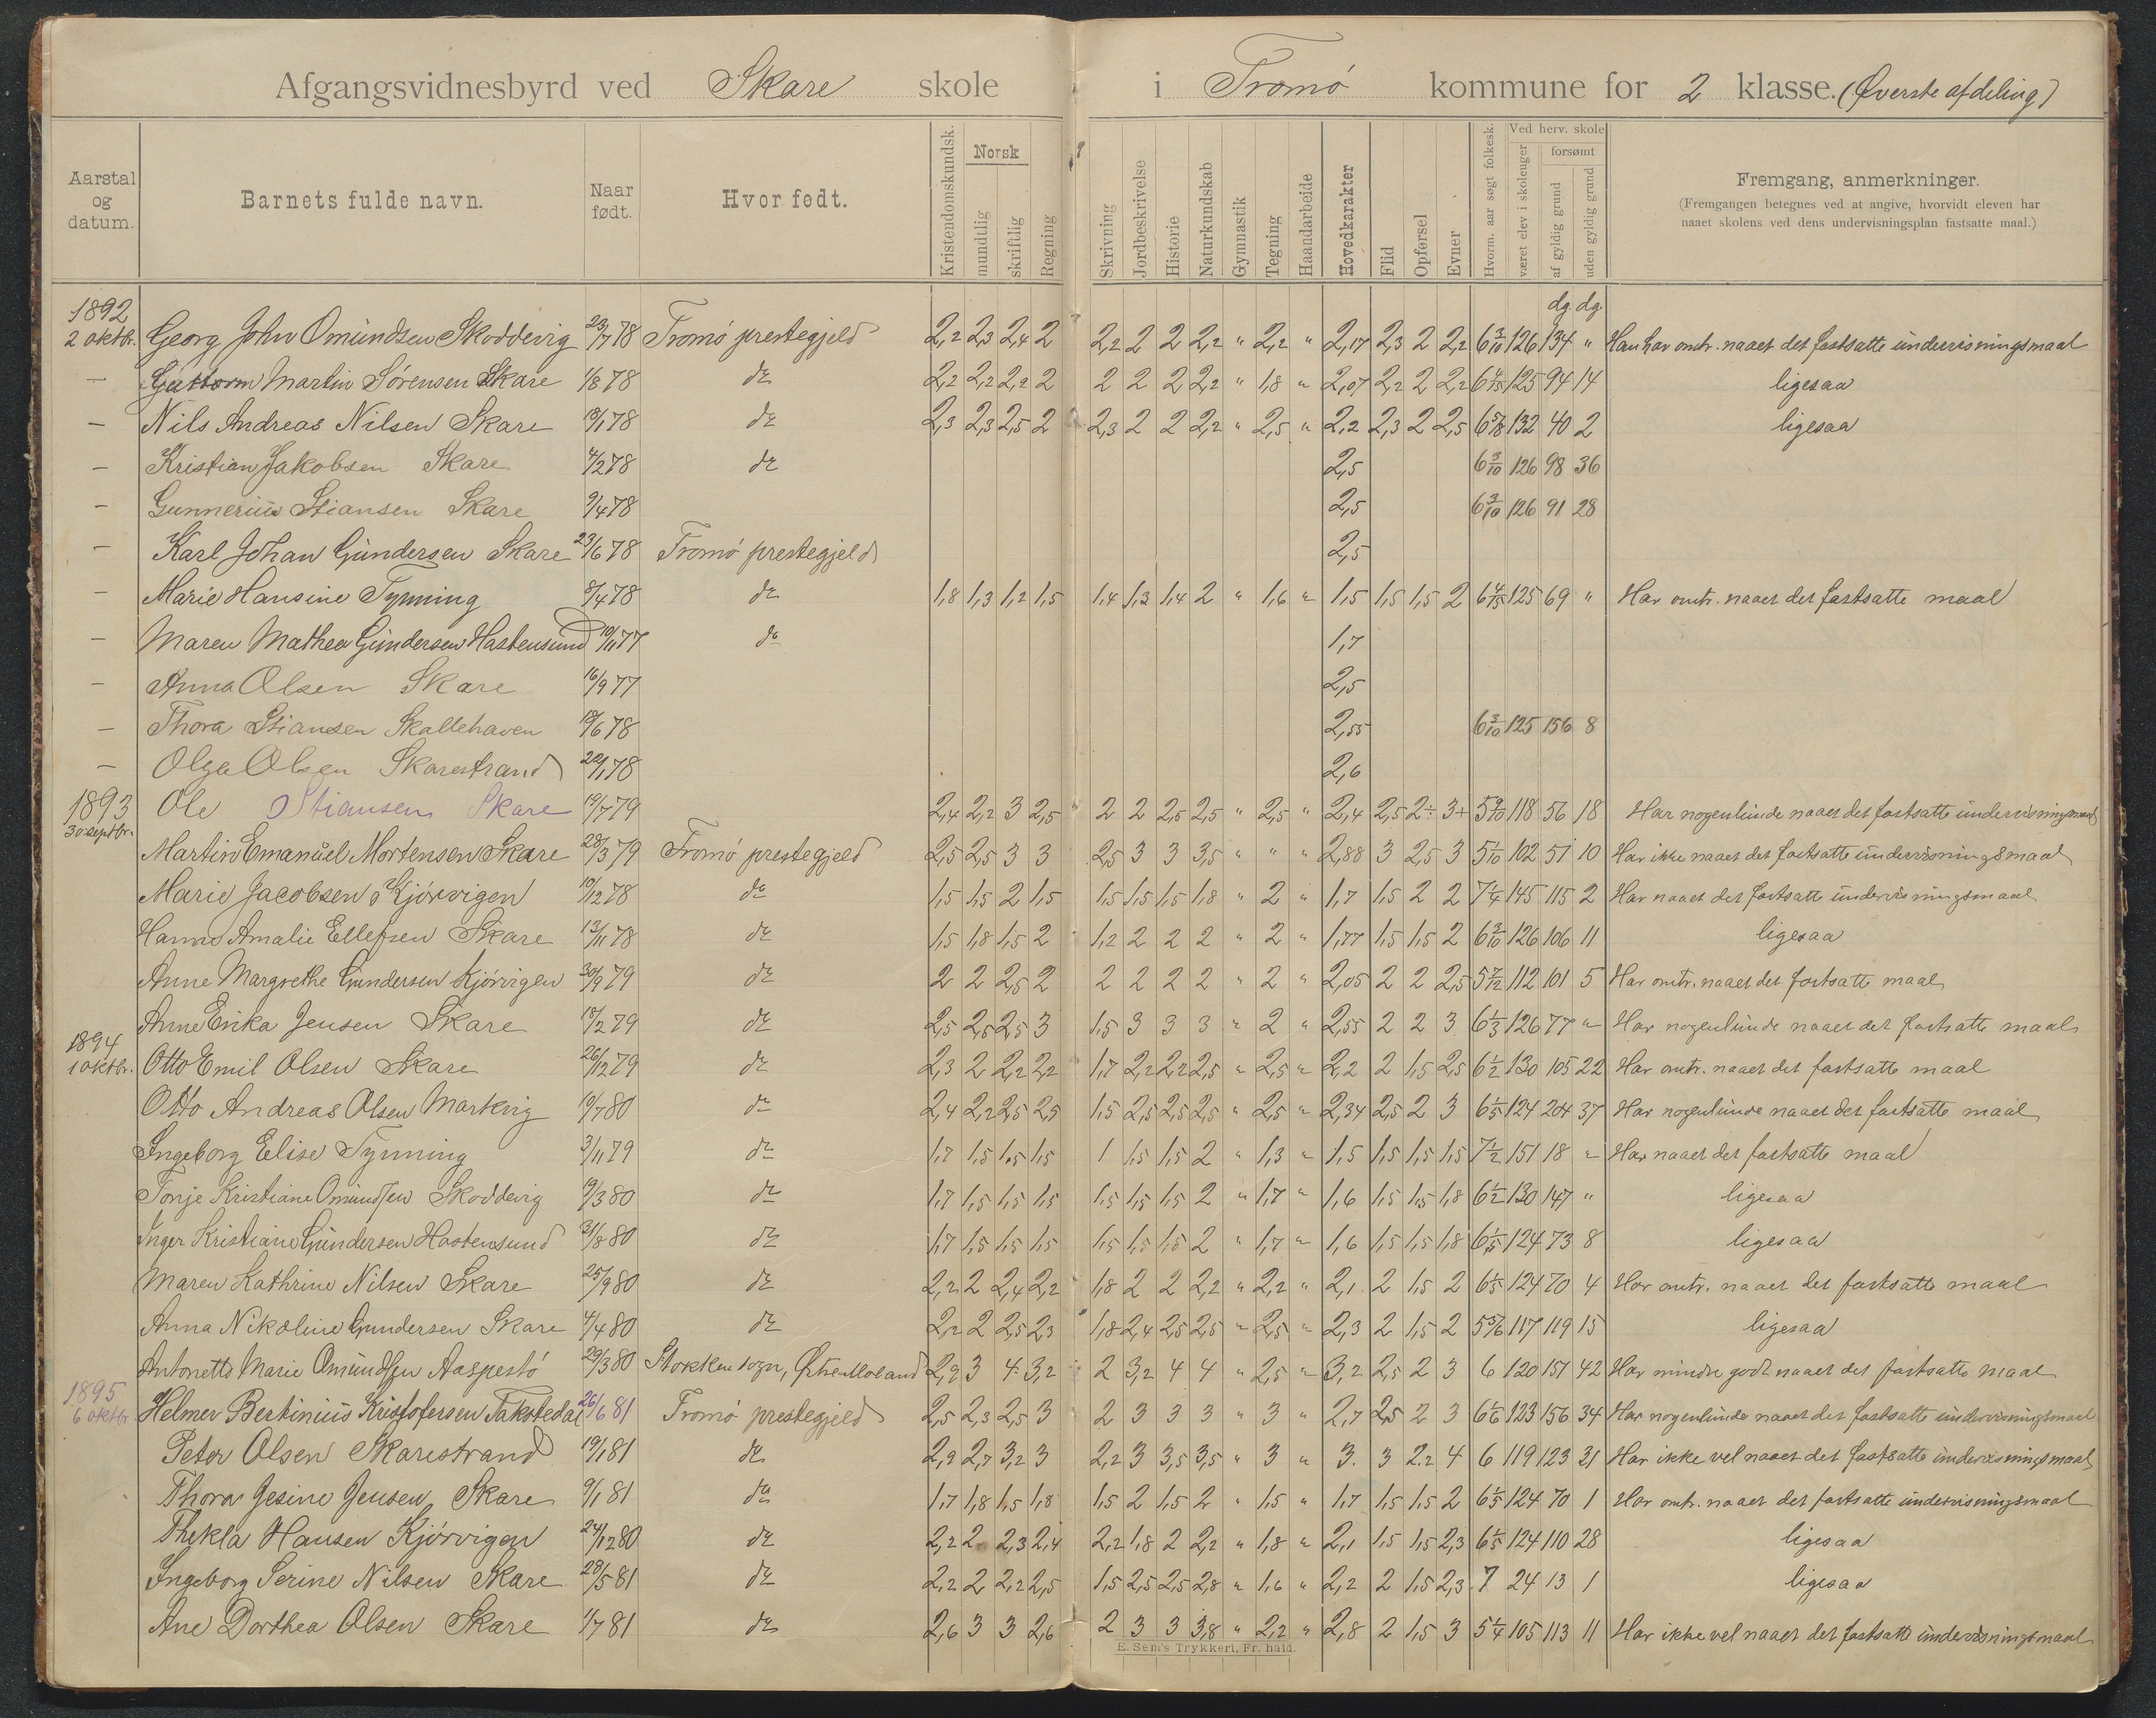 Afgangsvidnesbyrd ved Skare skole i Tromø kommune for 2 klasse. (Øverste afdeling)
Aarstal og datum. Barnets fulde navn. Naar født. Hvor født. Kristendomskundsk. Norsk mundtlig skriftlig Regning Skrivning Jordbeskrivelse Historie Naturkundskab Gymnastik Tegning Haandarbeide Hovedkarakter Flid Opførsel Evner Hvorm. aar søgt folkesk. Ved herv. skole været elev i skoleuger forsømt af gyldig grund uden gyldig grund Fremgang, anmerkninger.
(Fremgangen betegnes ved at angive, hvorvidt eleven har
naaet skolens ved dens undervisningsplan fastsatte maal.)
dg. dg.
1892
2 oktbr. Georg John Omundsen Skoddevig 23/7 78 Tromø prestegjeld 2,2 2,3 2,4 2 2,2 2 2 2,2 " 2,2 " 2,17 2,3 2 2,2 6 3/10 126 134 " Han har omtr. naaet det fastsatte undervisningsmaal
— Guttorm Martin Sørensen Skare 1/8 78 do 2,2 2,2 2,2 2 2 2 2 2,2 " 1,8 " 2,07 2,2 2 2,2 6 4/15 125 94 14 ligesaa
— Nils Andreas Nilsen Skare 18/1 78 do 2,3 2,3 2,5 2 2,3 2 2 2,2 " 2,5 " 2,2 2,3 2 2,5 6 5/8 132 40 2 ligesaa
— Kristian Jakobsen Skare 4/2 78 do 2,5 6 3/10 126 98 36
— Gunnerius Stiansen Skare 9/4 78 2,5 6 3/10 126 91 28
— Karl Johan Gundersen Skare 23/6 78 Tromø prestegjeld 2,5
— Marie Hansine Tynning 8/4 78 do 1,8 1,3 1,2 1,5 1,4 1,3 1,4 2 " 1,6 " 1,5 1,5 1,5 2 6 4/15 125 69 " Har omtr. naaet det fastsatte maal
— Maren Mathea Gundersen Hastensund 10/11 77 do 1,7
— Anna Olsen Skare 16/9 77 2,5
— Thora Stiansen Skallehaven 18/6 78 2,55 6 3/10 125 156 8
— Olga Olsen Skarestrand 22/1 78 2,6
1893 Ole Stiansen Skare 19/7 79 2,4 2,2 3 2,5 2 2 2,5 2,5 " 2,5 " 2,4 2,5 2÷ 3+ 5 9/10 118 56 18 Har nogenlunde naaet det fastsatte undervisningsmaal
30 septbr. Martin Emanuel Mortensen Skare 28/3 79 Tromø prestegjeld 2,5 2,5 3 3 2,5 3 3 3,5 " " " 2,88 3 2,5 3 5 1/10 102 51 10 Har ikke naaet det fastsatte undervisningsmaal
Marie Jacobsen Kjørvigen 10/12 78 do 1,5 1,5 2 1,5 1,5 1,5 1,5 1,8 " 2 " 1,7 1,5 2 2 7 1/4 145 115 2 Har naaet det fastsatte undervisningsmaal
Hanna Amalie Ellefsen Skare 13/11 78 do 1,5 1,8 1,5 2 1,2 2 2 2 " 2 " 1,77 1,5 1,5 2 6 3/10 126 106 11 ligesaa
Anne Margrethe Gundersen Kjørvigen 30/9 79 do 2 2 2,5 2 2 2 2 2 " 2 " 2,05 2 2 2,5 5 7/12 112 101 5 Har omtr. naaet det fastsatte maal
Anne Erika Jensen Skare 18/2 79 do 2,5 2,5 2,5 3 1,5 3 3 3 " 2 " 2,55 2 2 3 6 1/3 126 77 " Har nogenlunde naaet det fastsatte maal
1894
1 oktbr. Otto Emil Olsen Skare 26/12 79 do 2,3 2 2,2 2,2 1,7 2,2 2,2 2,5 " 2,5 " 2,2 2 1,5 2,5 6 1/2 130 105 22 Har omtr. naaet det fastsatte maal
Otto Andreas Olsen Markvig 19/7 80 do 2,4 2,2 2,5 2,5 1,5 2,5 2,5 2,5 " 2,5 " 2,34 2,5 2 3 6 1/5 124 204 37 Har nogenlunde naaet det fastsatte maal
Ingeborg Elise Tynning 3/11 79 do 1,7 1,5 1,5 1,5 1 1,5 1,5 2 " 1,3 " 1,5 1,5 1,5 1,5 7 1/2 151 18 " Har naaet det fastsatte maal
Tonje Kristiane Omundsen Skoddevig 19/3 80 do 1,7 1,5 1,5 1,5 1,5 1,5 1,5 2 " 1,7 " 1,6 1,5 1,5 1,8 6 1/2 130 147 " ligesaa
Inger Kristiane Gundersen Hastensund 31/8 80 do 1,7 1,5 1,5 1,5 1,5 1,5 1,5 2 " 1,7 " 1,6 1,5 1,5 1,8 6 1/5 124 73 8 ligesaa
Maren Kathrine Nilsen Skare 25/9 80 do 2,2 2 2,4 2,2 1,8 2 2 2,2 " 2,2 " 2,1 2 1,5 2 6 1/5 124 70 4 Har omtr. naaet det fastsatte maal
Anna Nikoline Gundersen Skare 4/4 80 do 2,2 2 2,5 2,3 1,8 2,4 2,5 2,5 " 2,5 " 2,3 2 1,5 2 5 5/6 117 119 15 ligesaa
Antonette Marie Omundsen Aaspestø 29/3 80 Stokken sogn, Østre Moland 2,9 3 4 3,2 2 3,2 4 4 " 2,5 " 3,2 2,5 2 3 6 120 151 42 Har mindre godt naaet det fastsatte maal
1895
6 oktbr Helmer Bertinius Kristofersen Takstedal 26/6 81 Tromø prestegjeld 2,5 2,3 2,5 3 2 3 3 3 " 3 " 2,7 2,5 2 3 6 1/6 123 156 34 Har nogenlunde naaet det fastsatte undervisningsmaal
Peter Olsen Skarestrand 19/1 81 do 2,9 2,7 3,2 3 2,2 3 3,5 3,5 " 3 " 3. 3 2.2 4 6 119 123 21 Har ikke vel naaet det fastsatte undervisningsmaal
Thora Jesine Jensen Skare 9/1 81 do 1,7 1,8 1,5 1,8 1,5 2 1,5 2 " 1,5 " 1,7 1,5 1,5 2 6 1/5 124 70 1 Har omtr. naaet det fastsatte undervisningsmaal
Thekla Hansen Kjørvigen 24/12 80 do 2,2 2 2,3 2,4 2,2 1,8 2 2,2 " 1,8 " 2,1 1,5 1,5 2,3 6 1/5 124 110 28 ligesaa
Ingeborg Serine Nilsen Skare 28/5 81 do 2,2 2 2,2 2,5 1,5 2,5 2,5 2,8 " 1,6 " 2,2 2 1,5 2,3 7 24 13 1 ligesaa
Ane Dorthea Olsen Skare 1/7 81 do 2,6 3 3 2,6 2 3 3 3,8 " 2,2 " 2,8 2 1,5 3 5 1/4 105 113 11 Har ikke vel naaet det fastsatte undervisningsmaal
E. Sem's Trykkeri, Fr. hald.